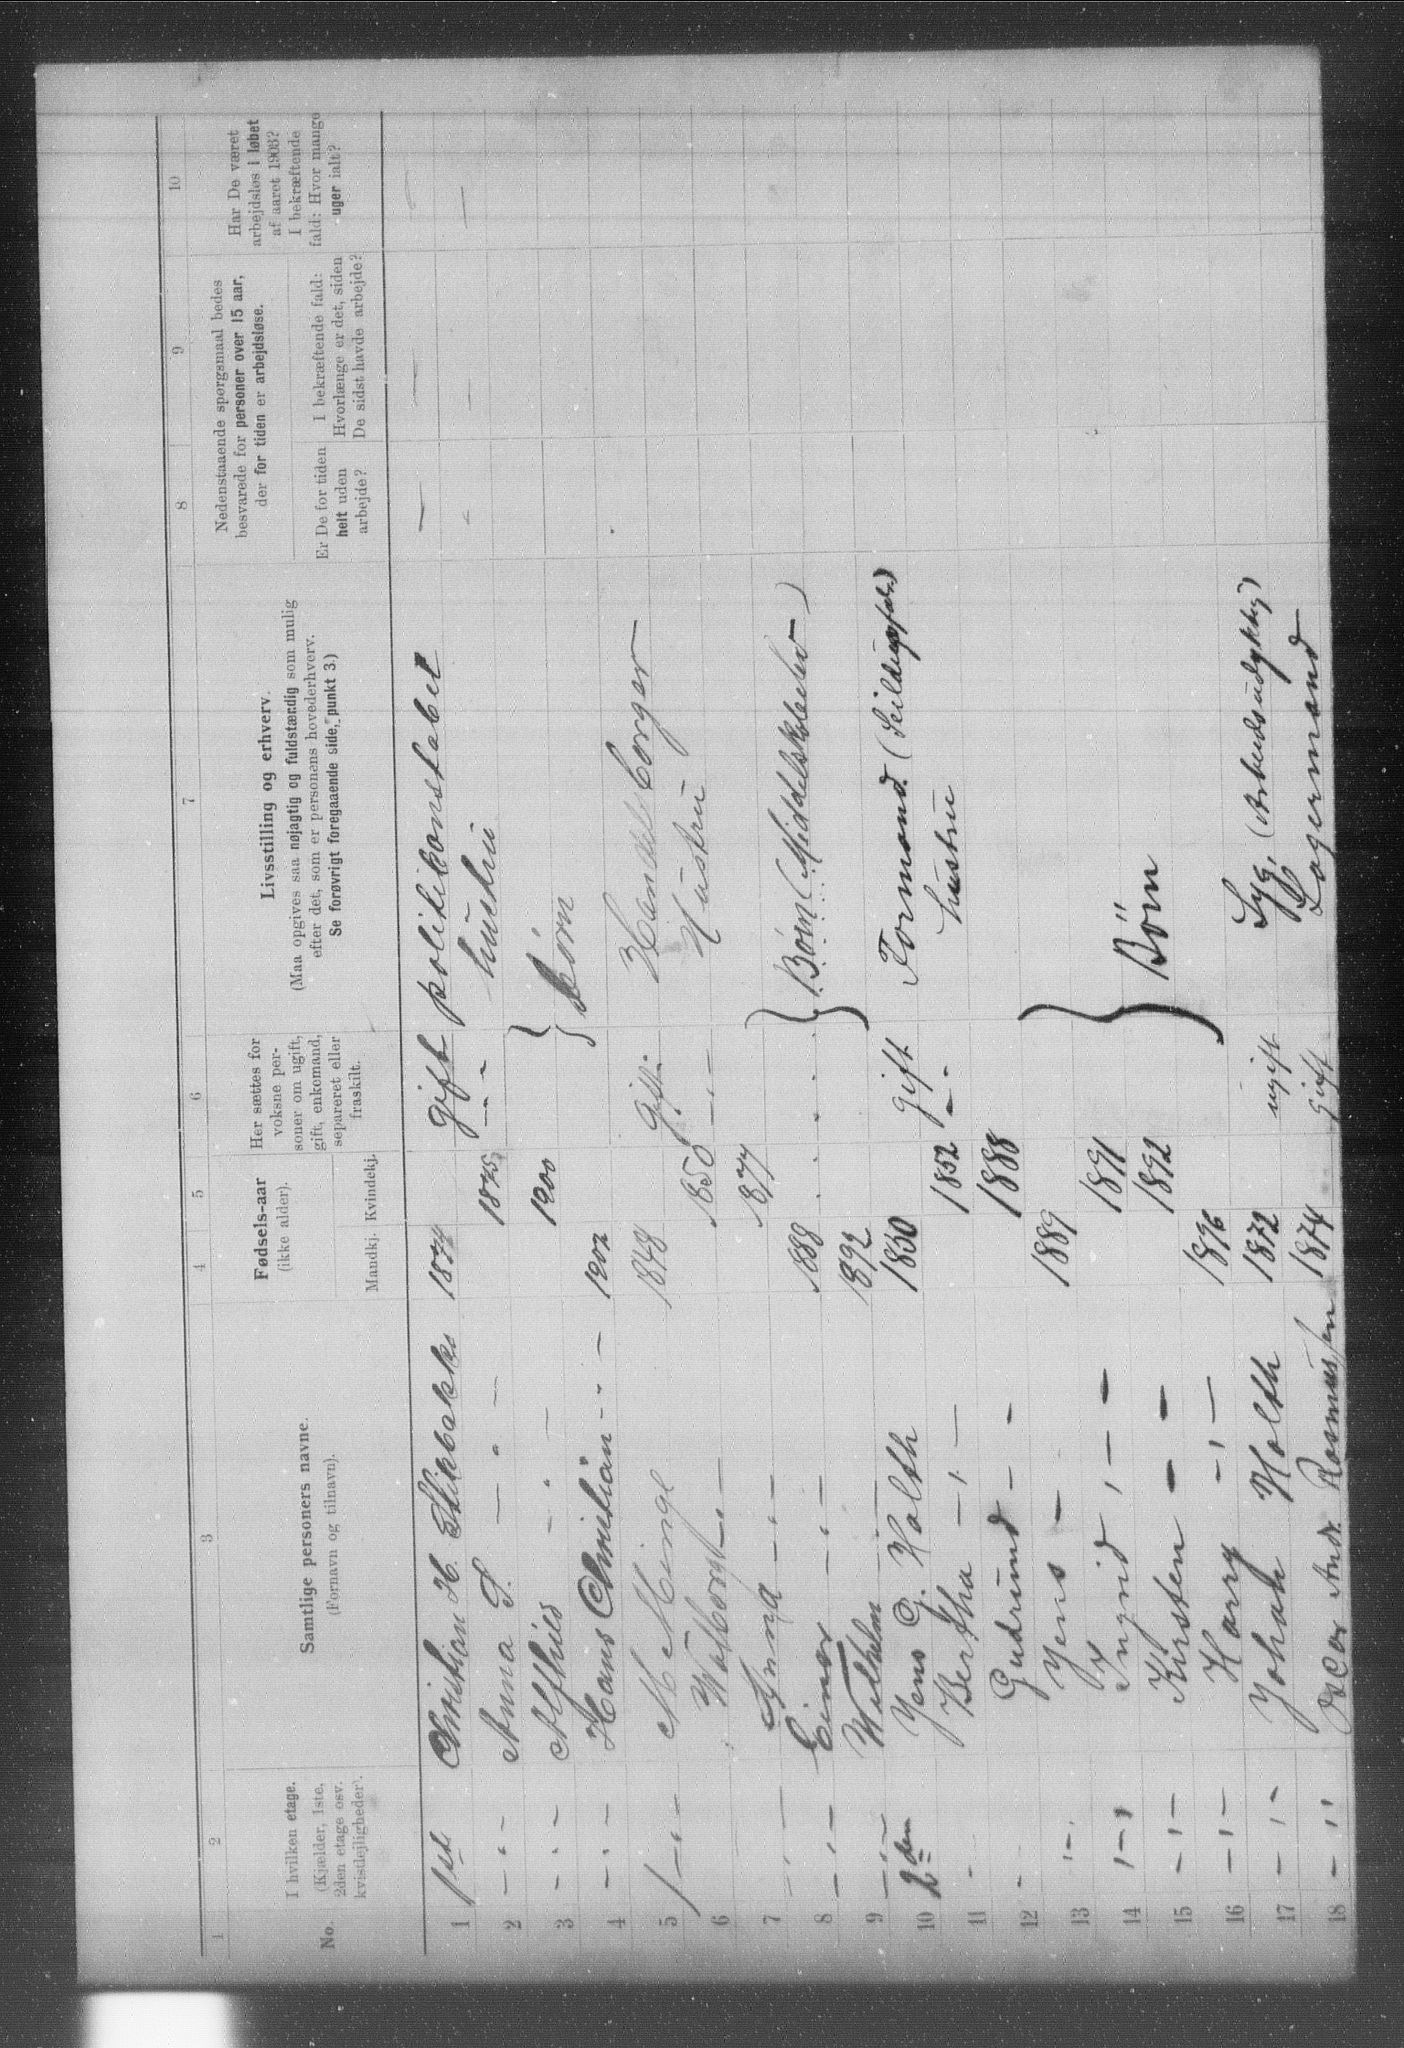 1 2 3 4 5 6 7 8 9 10
No.
I hvilken etage.
(Kjælder, 1ste,
2den etage osv.
kvistlejligheder).
Samtlige personers navne.
(Fornavn og tilnavn).
Fødsels-aar
(ikke alder).
Mandkj. Kvindekj.
Her sættes for
voksne per-
soner om ugift,
gift, enkemand,
separeret eller
fraskilt.
Livsstilling og erhverv.
(Maa opgives saa nøjagtig og fuldstændig som mulig
efter det, som er personens hovederhverv.
Se forøvrigt foregaaende side, punkt 3.)
Nedenstaaende spørgsmaal bedes
besvarede for personer over 15 aar,
der for tiden er arbejdsløse.
Er De for tiden
helt uden
arbejde?
I bekræftende fald:
Hvorlænge er det, siden
De sidst havde arbejde?
Har De været
arbejdsløs i løbet
af aaret 1903?
I bekræftende
fald: Hvor mange
uger ialt?
1 1ste Christian H. 1874 gift politikonstabel — — —
2 — " — Anna S. — " — 1875 — " — hustru - — —
3 — " — Alfhild — " — 1900 } børn
4 — " — Hans Christian — " — 1902
5 — " — M Minge 1848 gift. Handelsborger
6 Walborg — " — 1850 — " — Hustru
7 — " — Anna — " — 1877 } Børn (Middelskoleelev)
8 — " — Einar — " — 1888
9 — " — Wilhelm — " — 1892
10 2den Jens G. Holth 1850 gift Formand
11 - Bertha — " — 1852 — " — hustru
12 - Gudrund — — 1888 } Börn
13 — " — Jens — 1889
14 — " — Ingrid " — — 1891
15 — " — Kirsten — — 1892
16 — " — Harry — " — 1896
17 — " — Johan Holth 1872 ugift Syg. (Arbeidsudygtig)
18 — " " Oscar Andr. Rasmussen 1874 gift Lagermand